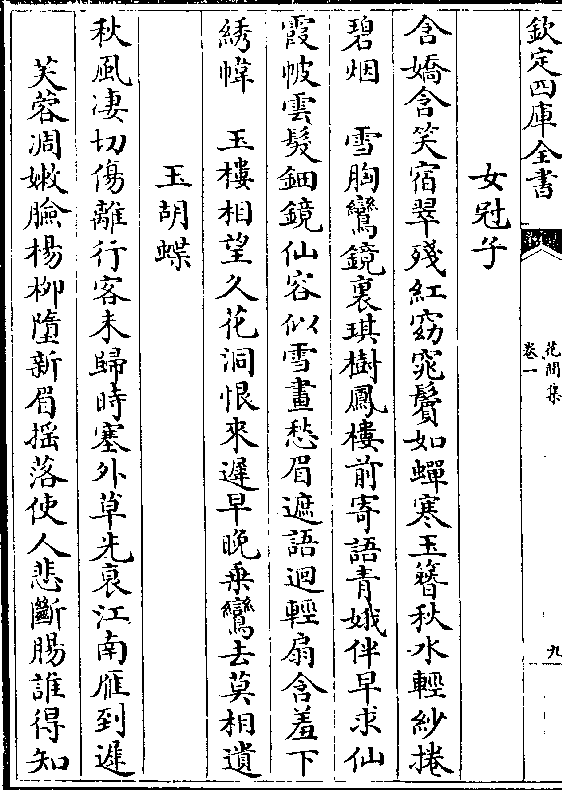 欽定四庫全書
花間集
卷一
九
女冠子
含嬌含笑宿翠殘紅窈窕鬢如蟬寒玉簪秋水輕紗捲
碧烟　雪胸鸞鏡裏琪樹鳳樓前寄語青娥伴早求仙
霞帔雲髮鈿鏡仙容似雪畫愁眉遮語迴輕扇含羞下
綉幃　玉樓相望久花洞恨來遲早晚乗鸞去莫相遺
玉胡蝶
秋風凄切傷離行客未歸時塞外草先衰江南雁到遲
芙蓉凋嫩臉楊柳墮新眉揺落使人悲斷腸誰得知